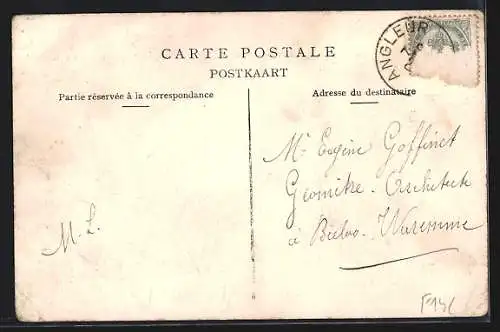 CARTE POSTALE
POSTKAART
Partie réservée à la correspondance
Adresse du destinataire
ANGLEUR
Mr Eugène Goffinet
Géomètre - Architecte
à Bleho - Waremme
M. L.